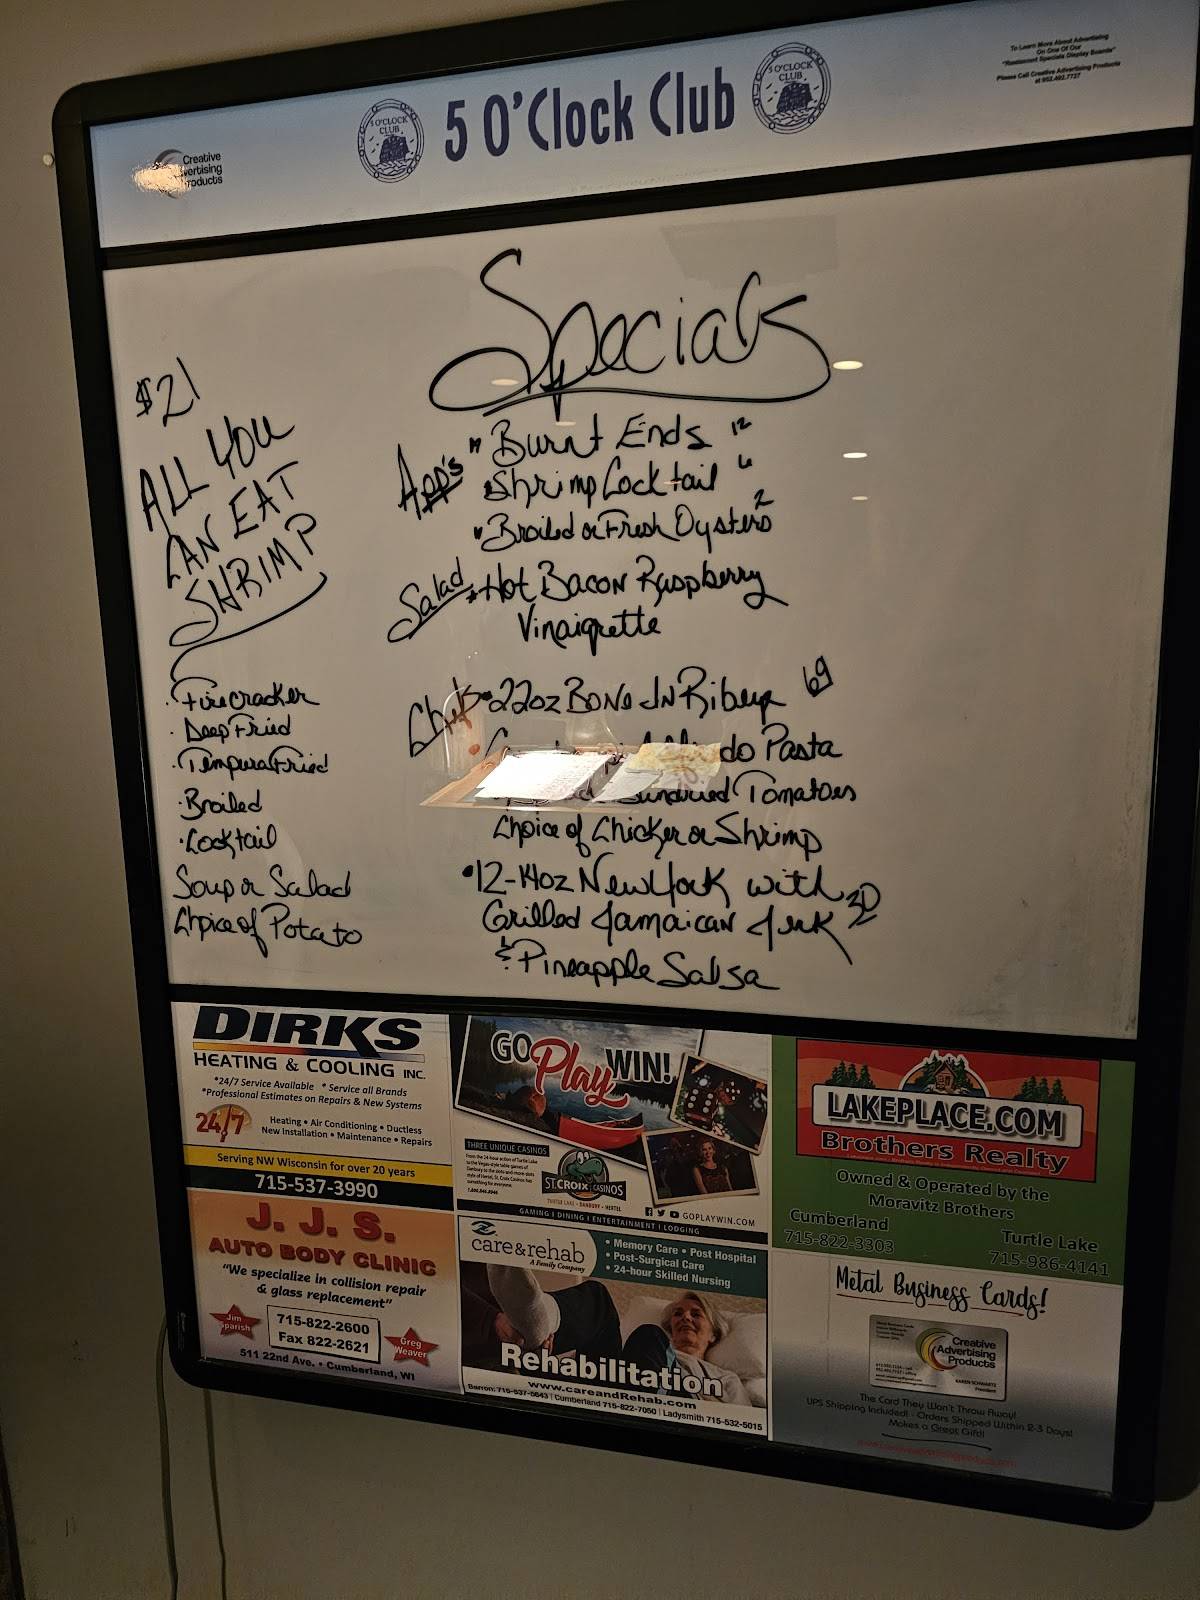 5 O'Clock Club
5 O'CLOCK CLUB
5 O'CLOCK CLUB
Creative
Advertising
Products
To Learn More About Advertising
On One Of Our
"Restaurant Specials Display Boards"
Please Call Creative Advertising Products
at 952.492.7727
Specials
$21
ALL YOU
CAN EAT
SHRIMP
· Firecracker
· Deep Fried
· Tempura Fried
· Broiled
· Cocktail
Soup or Salad
Choice of Potato
App's
Burnt Ends 12
Shrimp Cocktail 6
Broiled or Fresh Oysters 2
Salad
Hot Bacon Raspberry
Vinaigrette
Chef's
• 22oz Bone In Ribeye 69
Pasta
Sundried Tomatoes
Choice of Chicken or Shrimp
• 12-14oz New York with 30
Grilled Jamaican Jerk
& Pineapple Salsa
DIRKS
HEATING & COOLING INC.
*24/7 Service Available * Service all Brands
*Professional Estimates on Repairs & New Systems
24/7
Heating • Air Conditioning • Ductless
New Installation • Maintenance • Repairs
Serving NW Wisconsin for over 20 years
715-537-3990
J. J. S.
AUTO BODY CLINIC
"We specialize in collision repair
& glass replacement"
Jim Parish
715-822-2600
Fax 822-2621
Greg Weaver
511 22nd Ave. • Cumberland, WI
GO Play WIN!
THREE UNIQUE CASINOS
From the 24-hour action of Turtle Lake
to the Vegas-style table games of
Danbury to the slots-and-more-slots
style of Hertel, St. Croix Casinos has
something for everyone.
ST. CROIX CASINOS
TURTLE LAKE • DANBURY • HERTEL
GOPLAYWIN.COM
GAMING | DINING | ENTERTAINMENT | LODGING
care & rehab
A Family Company
• Memory Care • Post Hospital
• Post-Surgical Care
• 24-hour Skilled Nursing
Rehabilitation
www.careandRehab.com
Barron: 715-537-5643 | Cumberland 715-822-7050 | Ladysmith 715-532-5015
LAKEPLACE.COM
Brothers Realty
Owned & Operated by the
Moravitz Brothers
Cumberland
715-822-3303
Turtle Lake
715-986-4141
Metal Business Cards!
Creative
Advertising
Products
KAREN SCHWARTZ
President
The Card They Won't Throw Away!
UPS Shipping Included! - Orders Shipped Within 2-3 Days!
Makes a Great Gift!